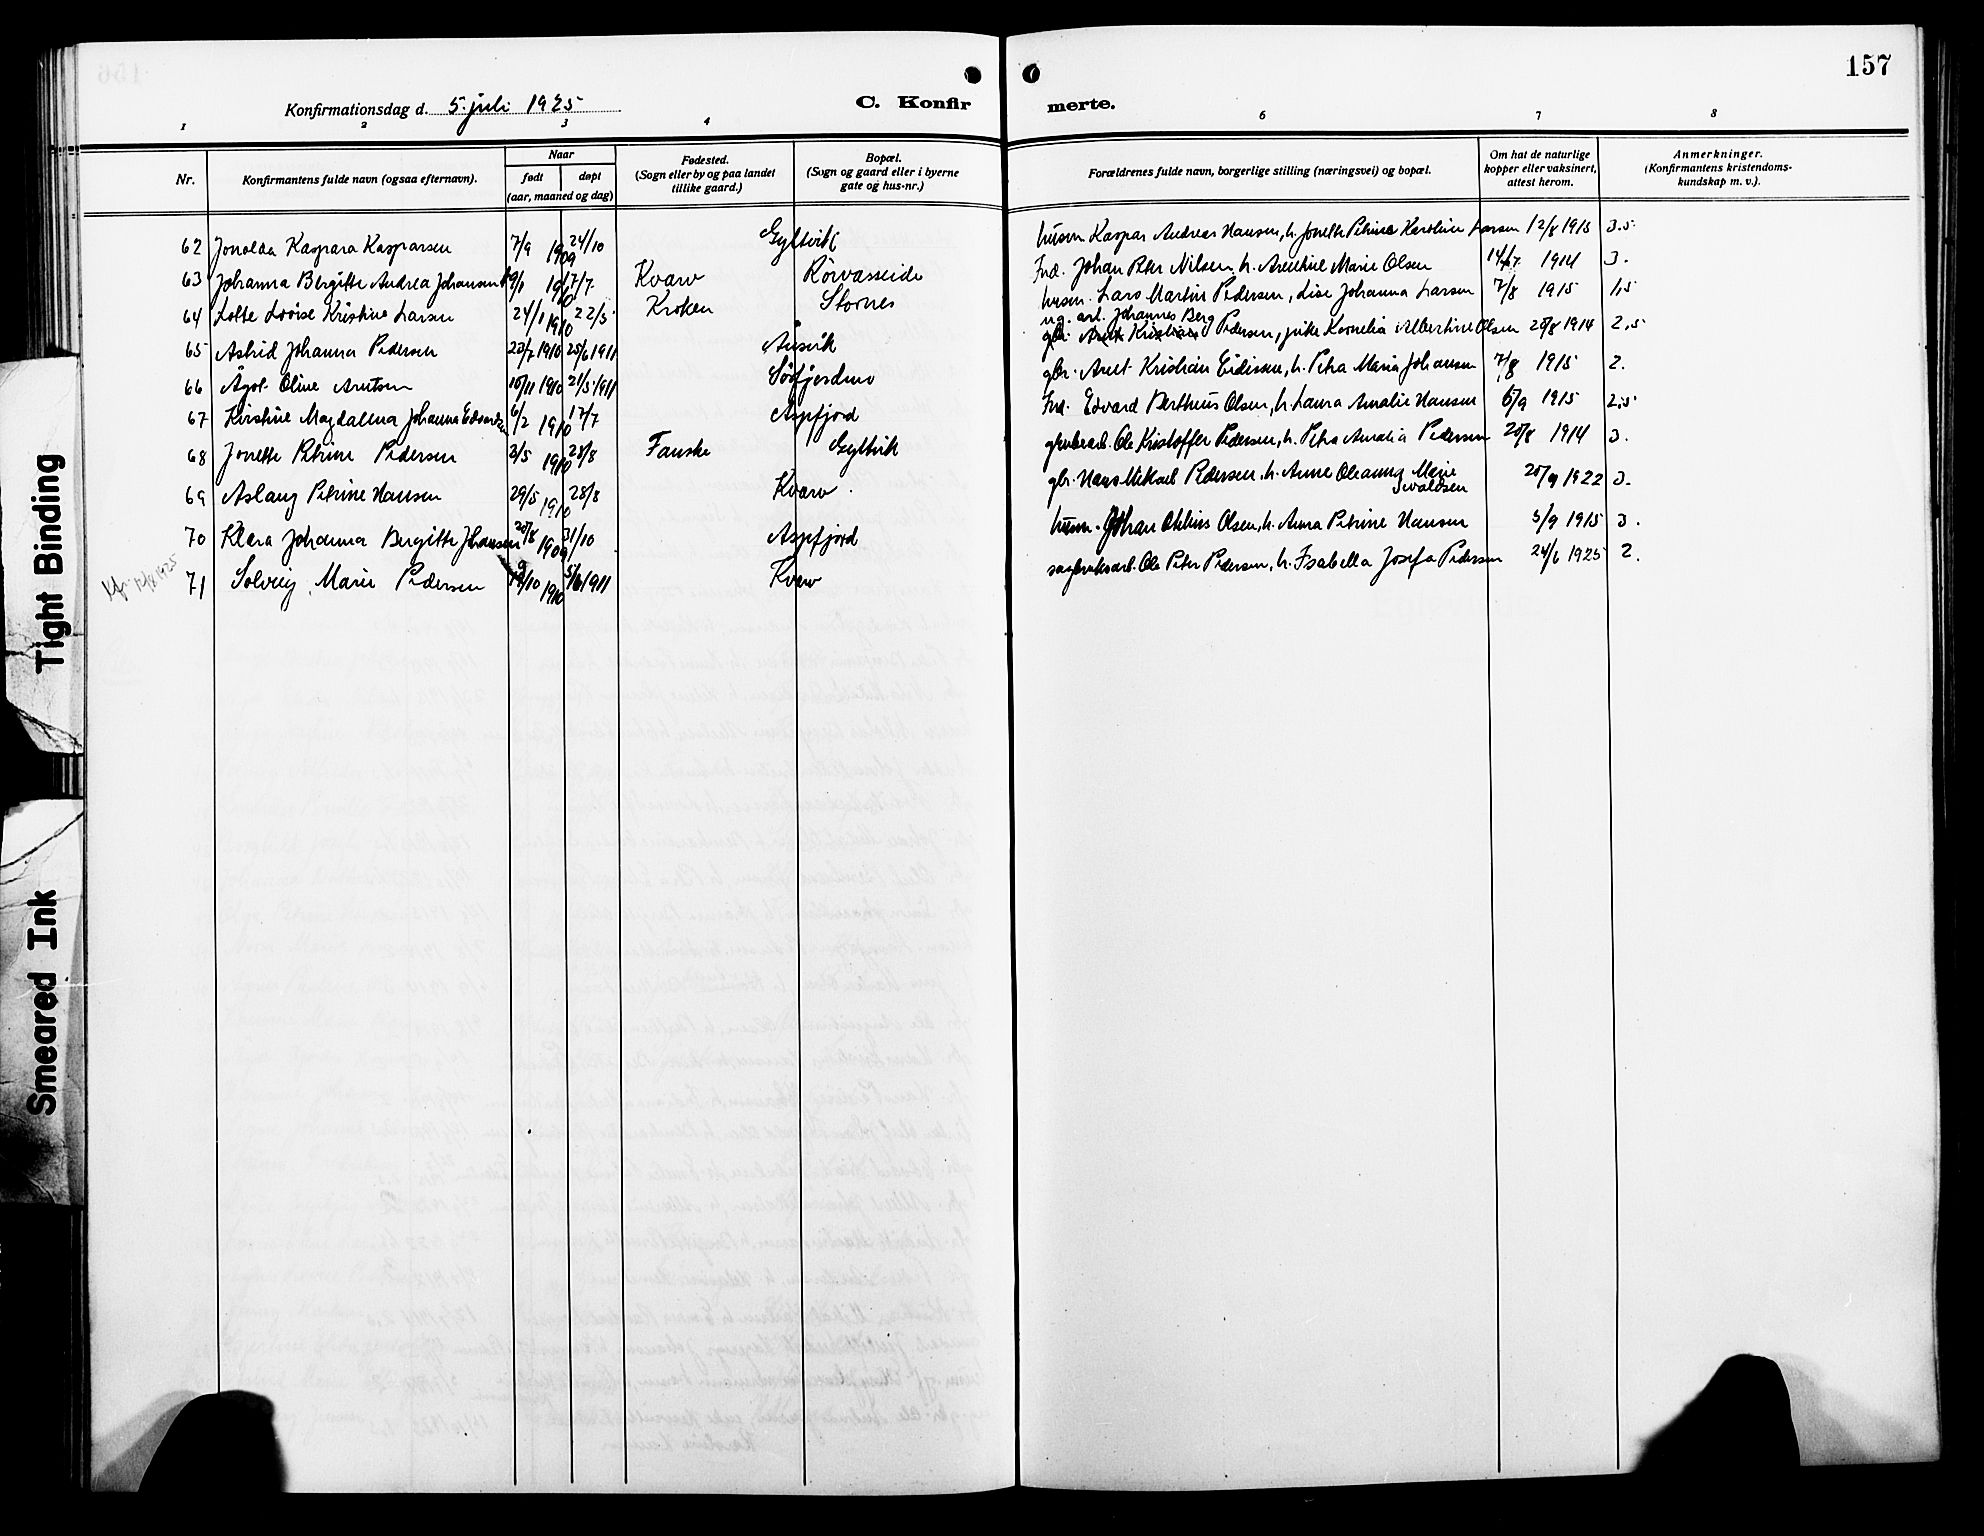 157
Konfirmationsdag d. 5. juli 1925
C. Konfirmerte.
1 2 3 4 6 7 8
Nr.
Konfirmantens fulde navn (ogsaa efternavn).
Naar
født døpt
(aar, maaned og dag)
Fødested.
(Sogn eller by og paa landet
tillike gaard.)
Bopæl.
(Sogn og gaard eller i byerne
gate og hus-nr.)
Forældrenes fulde navn, borgerlige stilling (næringsvei) og bopæl.
Om hat de naturlige
kopper eller vaksinert,
attest herom.
Anmerkninger.
(Konfirmantens kristendoms-
kundskap m. v.).
62 Jonolda Kaspara Kasparsen 7/9 1909 24/10 Gyltvik husm Kaspar Andreas Hansen, h. Jonette Petrine Karoline Larsen 12/8 1915 3.5
63 Johanna Bergitte Andrea Johansen 17/7 Kvarv Rørvasseide Frd. Johan Peter Nilsen, h. Arentine Marie Olsen 1914 3.
64 Lotte Lovise Kristine Larsen 24/1 1910 22/5 Kroken Stornes husm. Lars Martin Pedersen, Lise Johanna Larsen 7/8 1915 1,5
ug. arb. Johannes Berg
65 Astrid Johanna Pedersen 23/7 1910 25/6 1911 Ausvik Pedersen, pike Kornelia Albertine Olsen 25/8 1914 2,5
66 Ågot Oline Arntsen 10/11 1910 21/5 1911 Sørfjorden gbr. Arnt Kristian Eidissen, h. Petra Maria Johansen 7/8 1915 2.
67 Kirstine Magdalena Johanna Edvardsen 6/2 1910 17/7 Aspfjord Frd. Edvard Bertheus Olsen, h. Laura Amalie Hansen 6/9 1915 2,5
68 Jonette Petrine Pedersen 2/5 1910 28/8 Fauske Gyltvik grubearb. Ole Kristoffer Pedersen, h. Petra Amalia Pedersen 25/8 1914 3.
69 Aslaug Petrine Hansen 29/5 1910 28/8 Kvarv gbr. Hans Mikael Pedersen, h. Anne Oleanna Marie
Sivaldsen 25/9 1922 3.
70 Klara Johanna Bergitte Johansen 20/8 1909 31/10 Aspfjord husm. Johan Olsen, h. Anna Petrine Hansen 5/9 1915 3.
71 Solveig Marie Pedersen 1910 1911 Kvarv sagbruksarb. Ole Peter Pedersen, h. Isabella Josefa Pedersen 24/6 1925 2.
Tight Binding
Smeared Ink